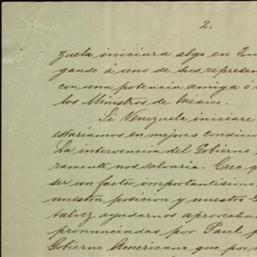 2.
zuela iniciara algo en Eu
gando á uno de sus represen
con una potencia amiga ó á
los Ministros de Mexico.
Si Venezuela iniciare
estariamos en mejores condicio
La intervencion del Gobierno
ramente nos salvaria. Creo q
ser un factor importantisimo
nuestra posicion y nuestro
talvez ayudarnos aprovechan
pronunciadas por Paul p
Gobierno Americano que por